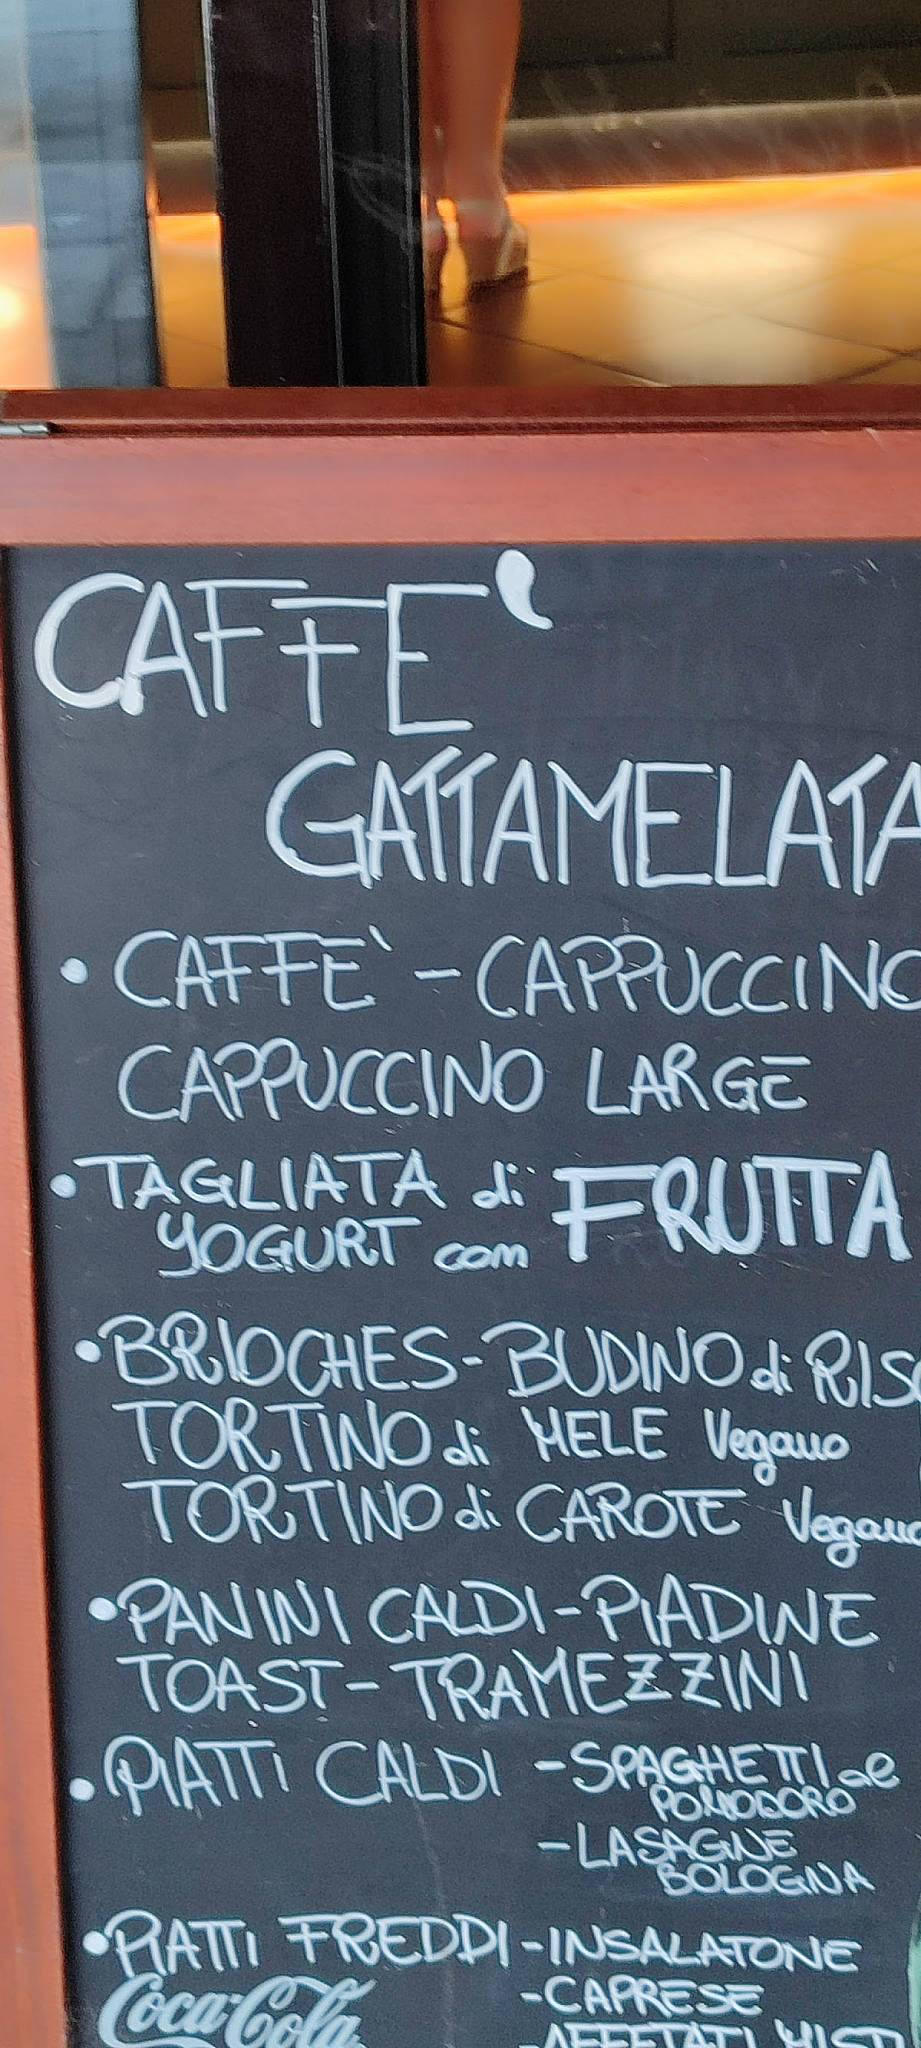 CAFFE'
GATTAMELATA
• CAFFE` - CAPPUCCINO
CAPPUCCINO LARGE
• TAGLIATA di FRUTTA
YOGURT con
• BRIOCHES - BUDINO di RISO
TORTINO di MELE Vegano
TORTINO di CAROTE Vegano
• PANINI CALDI - PIADINE
TOAST - TRAMEZZINI
• PIATTI CALDI - SPAGHETTI al
POMODORO
- LASAGNE
BOLOGNA
• PIATTI FREDDI - INSALATONE
- CAPRESE
- AFFETATI MISTI
Coca-Cola